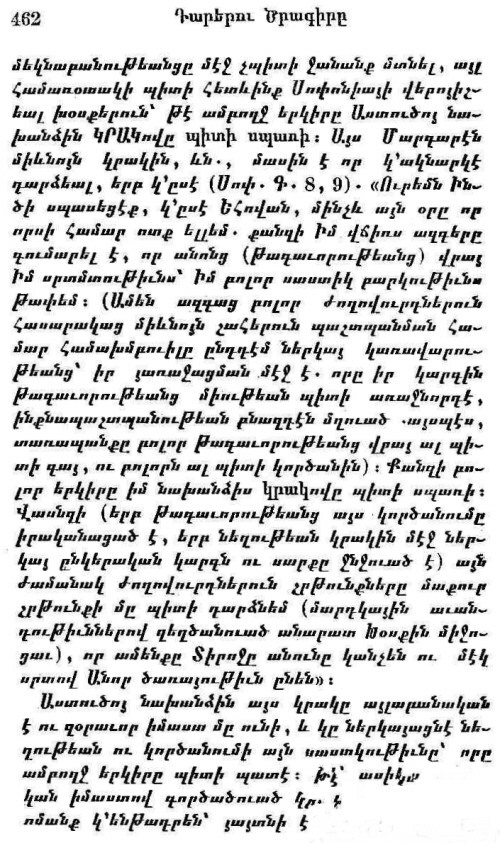 462
Դարերու Ծրագիրը
մեկնաբանութեանցը մէջ չպիտի ջանանք մտնել, այլ
համառօտակի պիտի հետևինք Սոփոնիայի վերոյիշ-
եալ խօսքերուն՝ թէ ամբողջ երկիրը Աստուծոյ նա-
խանձին ԿՐԱԿովը պիտի սպառի։ Այս Մարգարէն
միևնոյն կրակին, ևն., մասին է որ կ՚ակնարկէ
դարձեալ, երբ կ՚ըսէ (Սոփ. Գ. 8, 9). «Ուրեմն Ին-
ծի սպասեցէք, կ՚ըսէ Եհովան, մինչև այն օրը որ
որսի համար ոտք ելլեմ. քանզի Իմ վճիռս ազգերը
գումարել է, որ անոնց (թագաւորութեանց) վրայ
Իմ սրտմտութիւնս՝ Իմ բոլոր սաստիկ բարկութիւնս
թափեմ։ (Ամեն ազգաց բոլոր ժողովուրդներուն
հասարակաց միևնոյն շահերուն պաշտպանման հա-
մար համախմբուիլը ընդդէմ ներկայ կառավարու-
թեանց՝ իր յառաջացման մէջ է. որը իր կարգին
թագաւորութեանց միութեան պիտի առաջնորդէ,
ինքնապաշտպանութեան բնազդէն մղուած այսպէս,
տառապանքը բոլոր թագաւորութեանց վրայ ալ պի-
տի գայ, ու բոլորն ալ պիտի կործանին)։ Քանզի բո-
լոր երկիրը իմ նախանձիս կրակովը պիտի սպառի։
Վասնզի (երբ թագաւորութեանց այս կործանումը
իրականացած է, երբ նեղութեան կրակին մէջ ներ-
կայ ընկերական կարգն ու սարքը ջնջուած է) այն
ժամանակ ժողովուրդներուն շրթունքները մաքուր
շրթունքի մը պիտի դարձնեմ (մարդկային աւան-
դութիւններով չեղծանուած անարատ Խօսքին միջո-
ցաւ), որ ամենքը Տիրոջը անունը կանչեն ու մէկ
սրտով Անոր ծառայութիւն ընեն»։
Աստուծոյ նախանձին այս կրակը այլաբանական
է ու զօրաւոր իմաստ մը ունի, և կը ներկայացնէ նե-
ղութեան ու կործանումի այն սաստկութիւնը՝ որը
ամբողջ երկիրը պիտի պատէ։ Թէ՝ ասիկա
կան իմաստով գործածուած
ոմանք կ՚ենթադրեն՝ յայտնի է